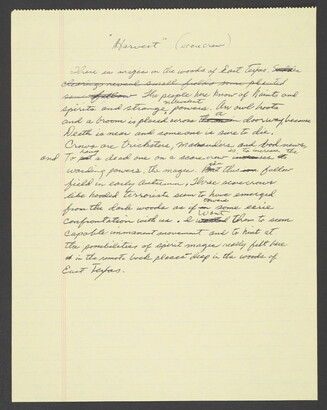 "Harvest" (scarecrow)
There is magic in the woods of East Texas.
clearings reveal small fields some planted
some fallow The people here know of haints and
spirits and strange powers. An owl hoots
and a broom is placed across a doorway because
Death is near and someone is sure to die.
Crows are tricksters, marauders and bad news,
and To hang a dead one on a scarecrow is to increase the
warding powers, the magic of this fallow
field in early Autumn. Three scarecrows
like hooded terrorists seem to have emerged
from the dark woods as if in some eerie
confrontation with us. I want them to seem
capable imminent movement and to hint at
the possibilities of spirit magic really felt here
in the remote back places deep in the woods of
East Texas.